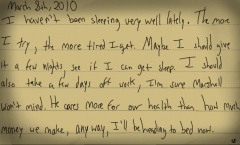 March 8th, 2010
I haven't been sleeping very well lately. The more
I try, the more tired I get. Maybe I should give
it a few nights, see if I can get sleep. I should
also take a few days off work, I'm sure Marshall
won't mind. He cares more for our health than how much
money we make, any way, I'll be heading to bed now.